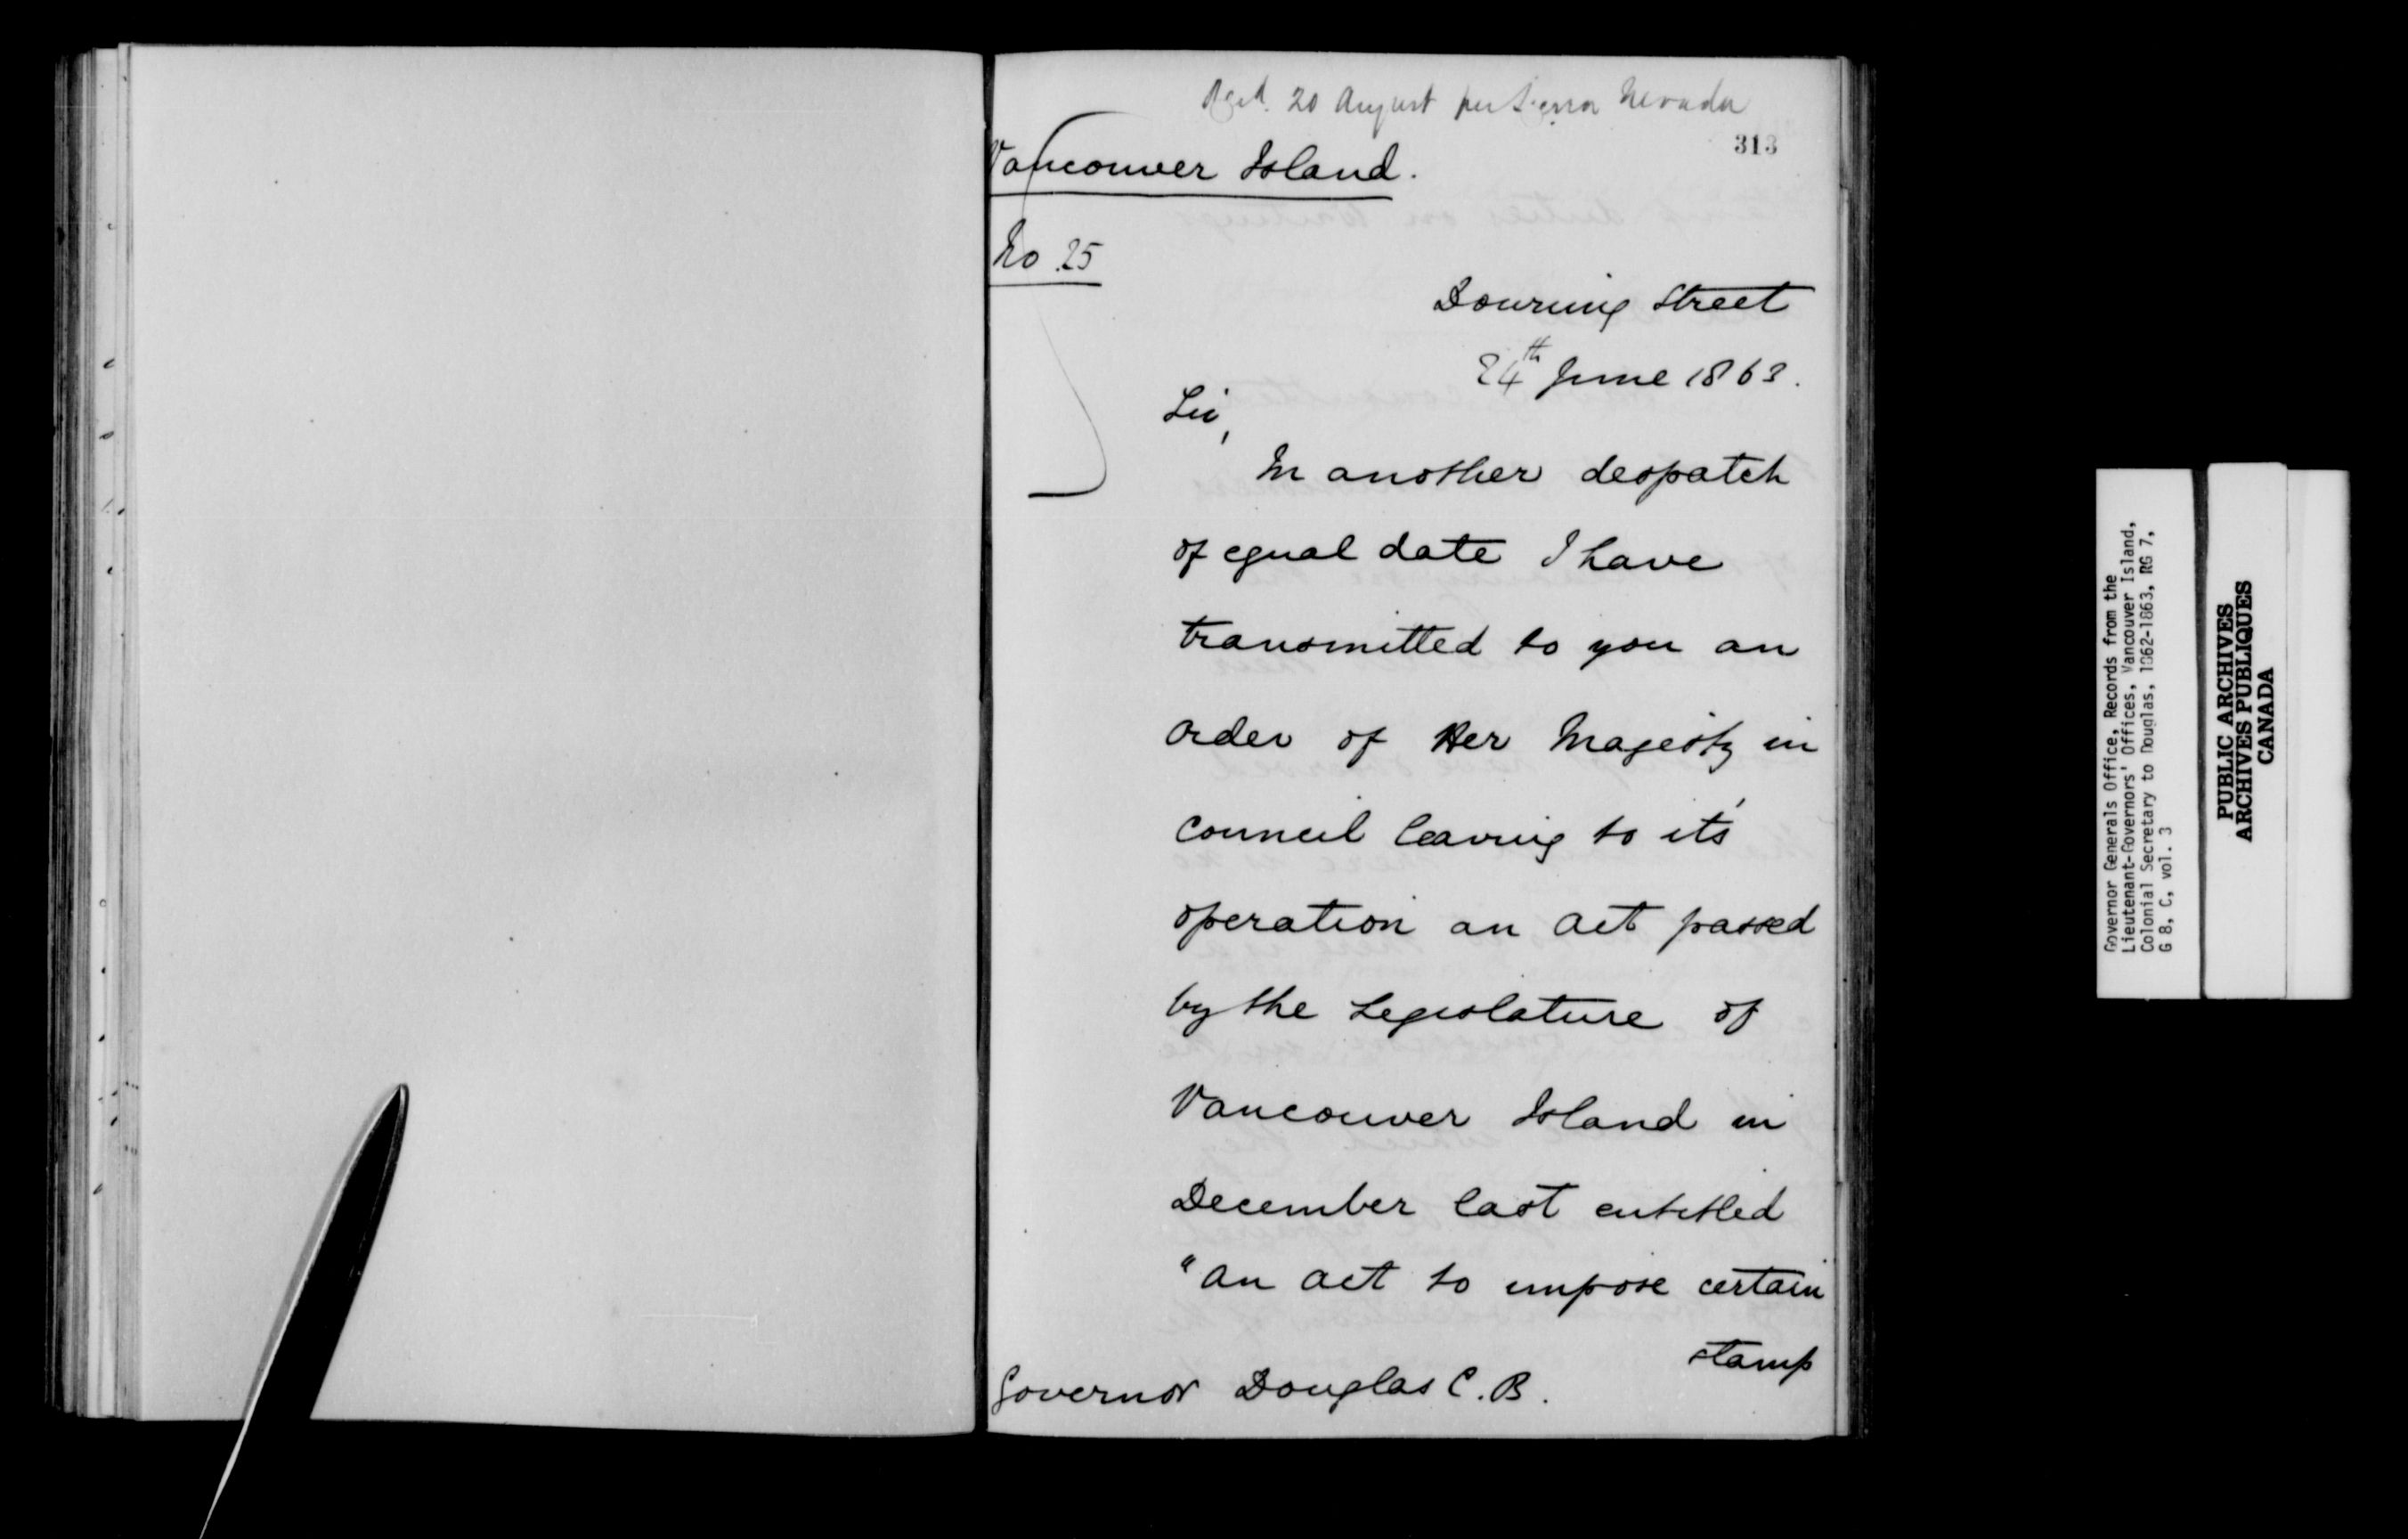 Rced. 20 August per Sierra Nevada
313
Vancouver Island.
No 25
Downing Street
24th June 1863.
Sir,
In another despatch
of equal date I have
transmitted to you an
order of Her Majesty in
Council leaving to it's
operation an Act passed
by the Legislature of
Vancouver Island in
December last entitled
"An Act to impose certain
stamp
Governor Douglas C.B.
Governor Generals Office, Records from the
Lieutenant-Governors' Offices, Vancouver Island,
Colonial Secretary to Douglas, 1862-1863, RG 7,
G 8, C, vol. 3
PUBLIC ARCHIVES
ARCHIVES PUBLIQUES
CANADA